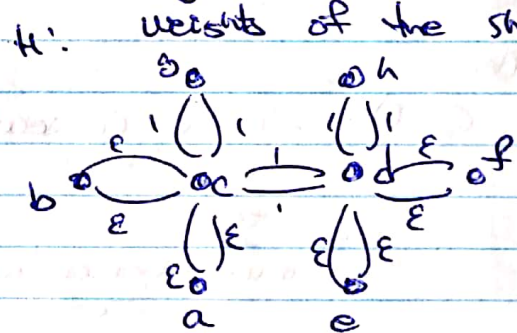 H': weights of the sh
g h
1 1 1 1
ε 1 ε f
b c d
ε 1 ε
ε ε ε ε
a e